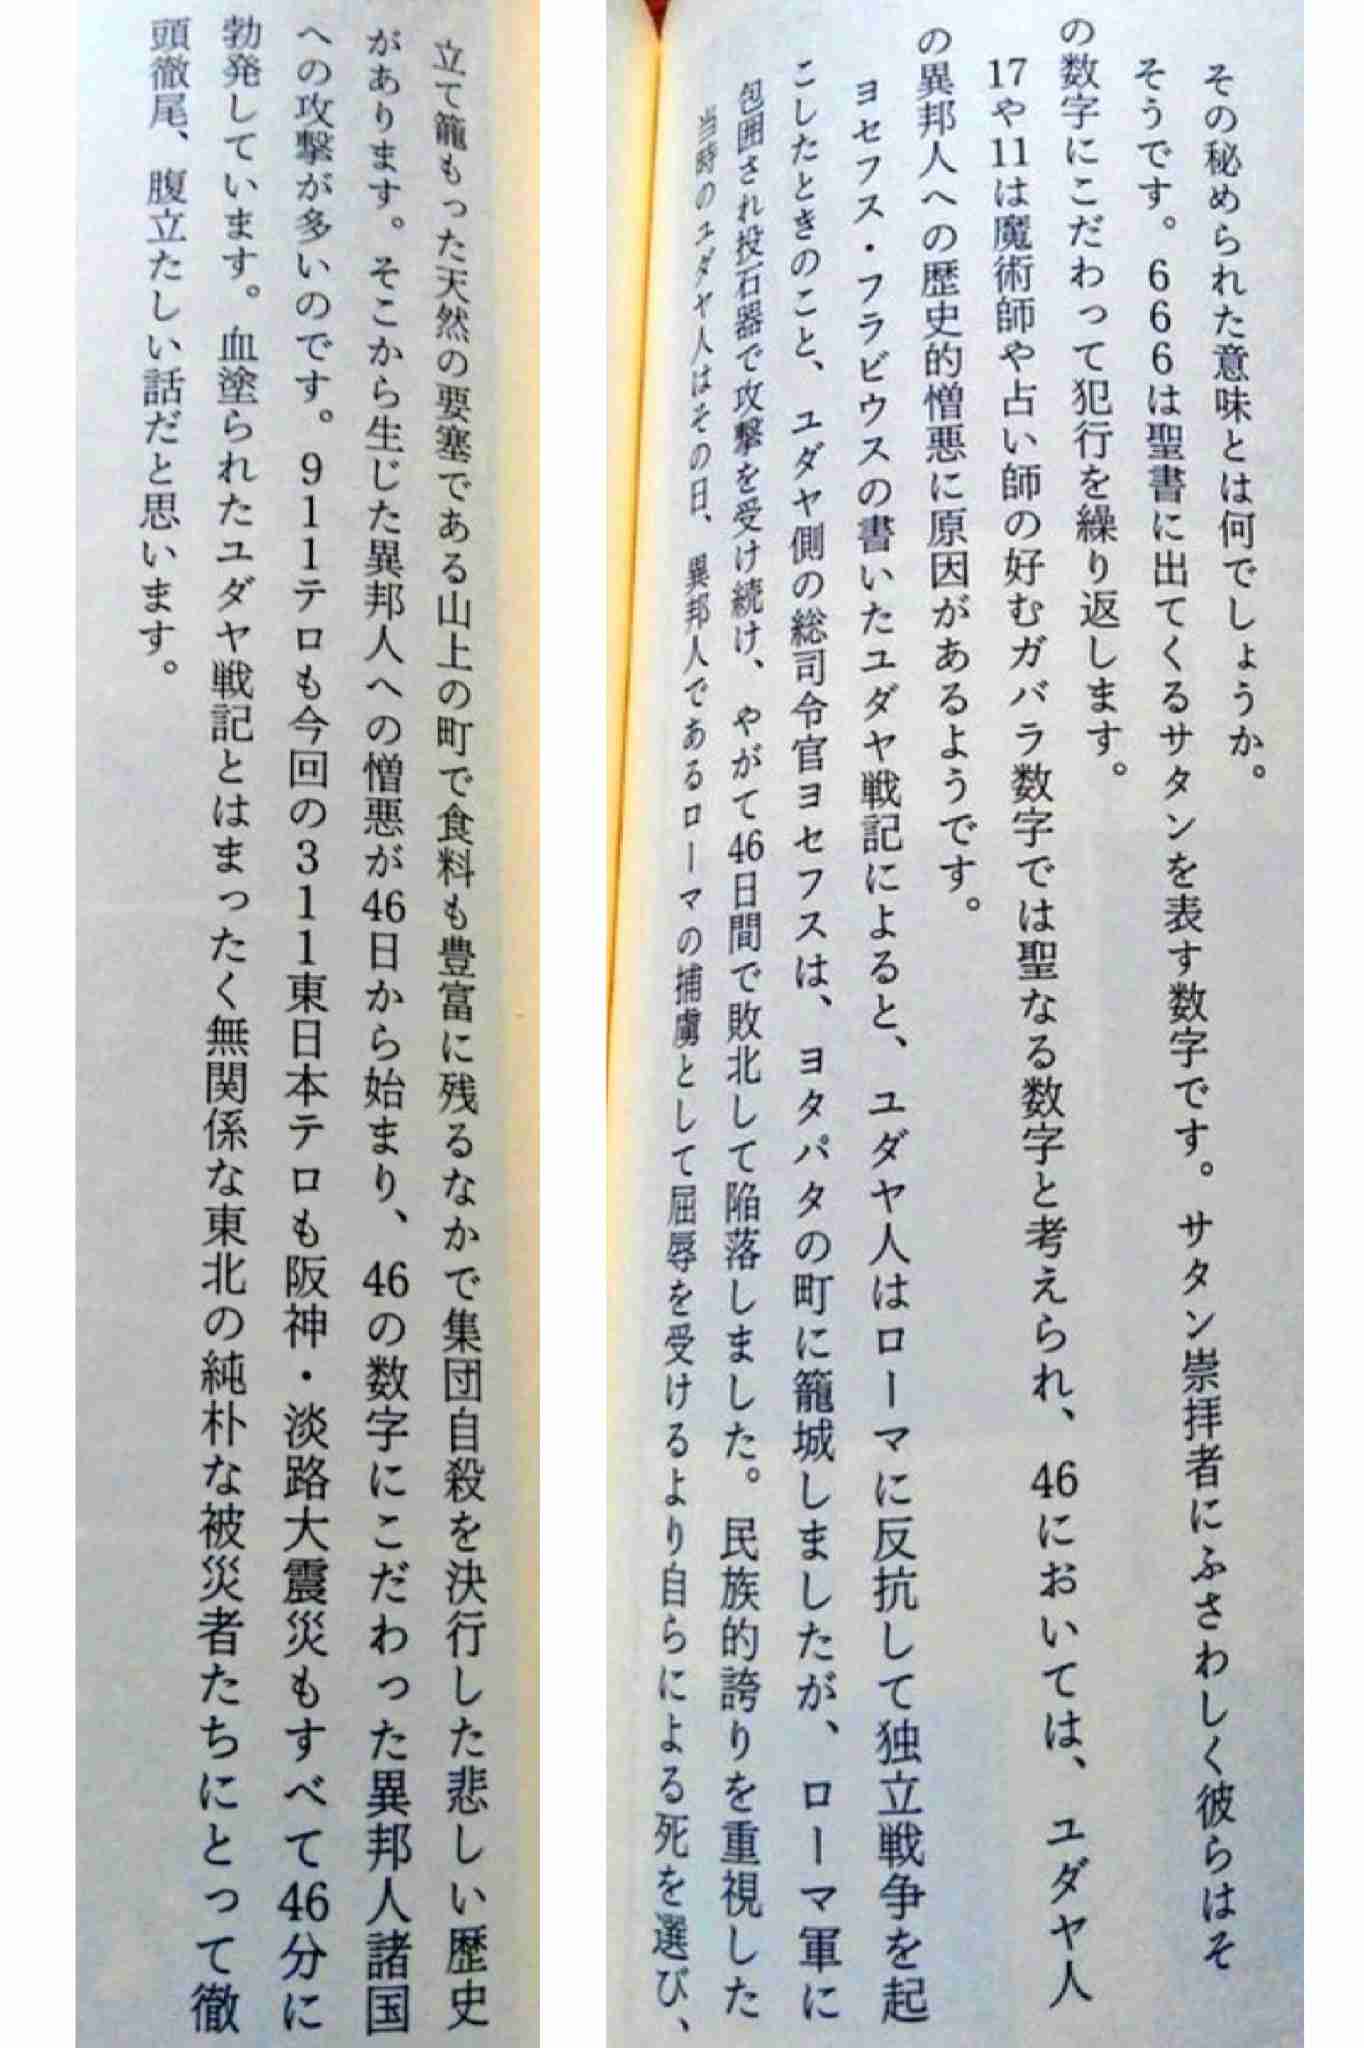 その秘められた意味とは何でしょうか。
そうです。666は聖書に出てくるサタンを表す数字です。サタン崇拝者にふさわしく彼らはそ
の数字にこだわって犯行を繰り返します。
17や11は魔術師や占い師の好むガバラ数字では聖なる数字と考えられ、46においては、ユダヤ人
の異邦人への歴史的憎悪に原因があるようです。
ヨセフス・フラビウスの書いたユダヤ戦記によると、ユダヤ人はローマに反抗して独立戦争を起
こしたときのこと、ユダヤ側の総司令官ヨセフスは、ヨタパタの町に籠城しましたが、ローマ軍に
包囲され投石器で攻撃を受け続け、やがて46日間で敗北して陥落しました。民族的誇りを重視した
当時のユダヤ人はその日、異邦人であるローマの捕虜として屈辱を受けるより自らによる死を選び、
立て籠もった天然の要塞である山上の町で食料も豊富に残るなかで集団自殺を決行した悲しい歴史
があります。そこから生じた異邦人への憎悪が46日から始まり、46の数字にこだわった異邦人諸国
への攻撃が多いのです。911テロも今回の311東日本テロも阪神・淡路大震災もすべて46分に
勃発しています。血塗られたユダヤ戦記とはまったく無関係な東北の純朴な被災者たちにとって徹
頭徹尾、腹立たしい話だと思います。